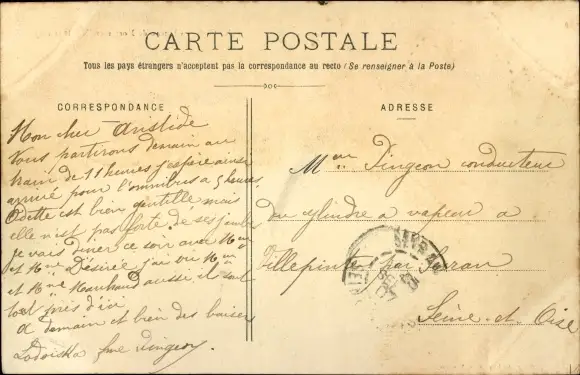 CARTE POSTALE
Tous les pays étrangers n'acceptent pas la correspondance au recto (Se renseigner à la Poste)
CORRESPONDANCE
Mon cher Aristide
Nous partirons demain au
train de 11 heures j'espère ainsi
arrivé pour l'omnibus a 5 heures,
Odette est bien gentille mais
elle n'est pas forte de ses jambes
je vais diner ce soir avec Mr
et Mme Désirée j'ai vu Mr
et Mme Marchand aussi, il sont
tout près d'ici
A demain et bien des baisers
Lodoiska fme Dingeon
ADRESSE
Mr Dingeon conducteur
du cylindre a vapeur a
Villepinte par Sevran
Seine et Oise